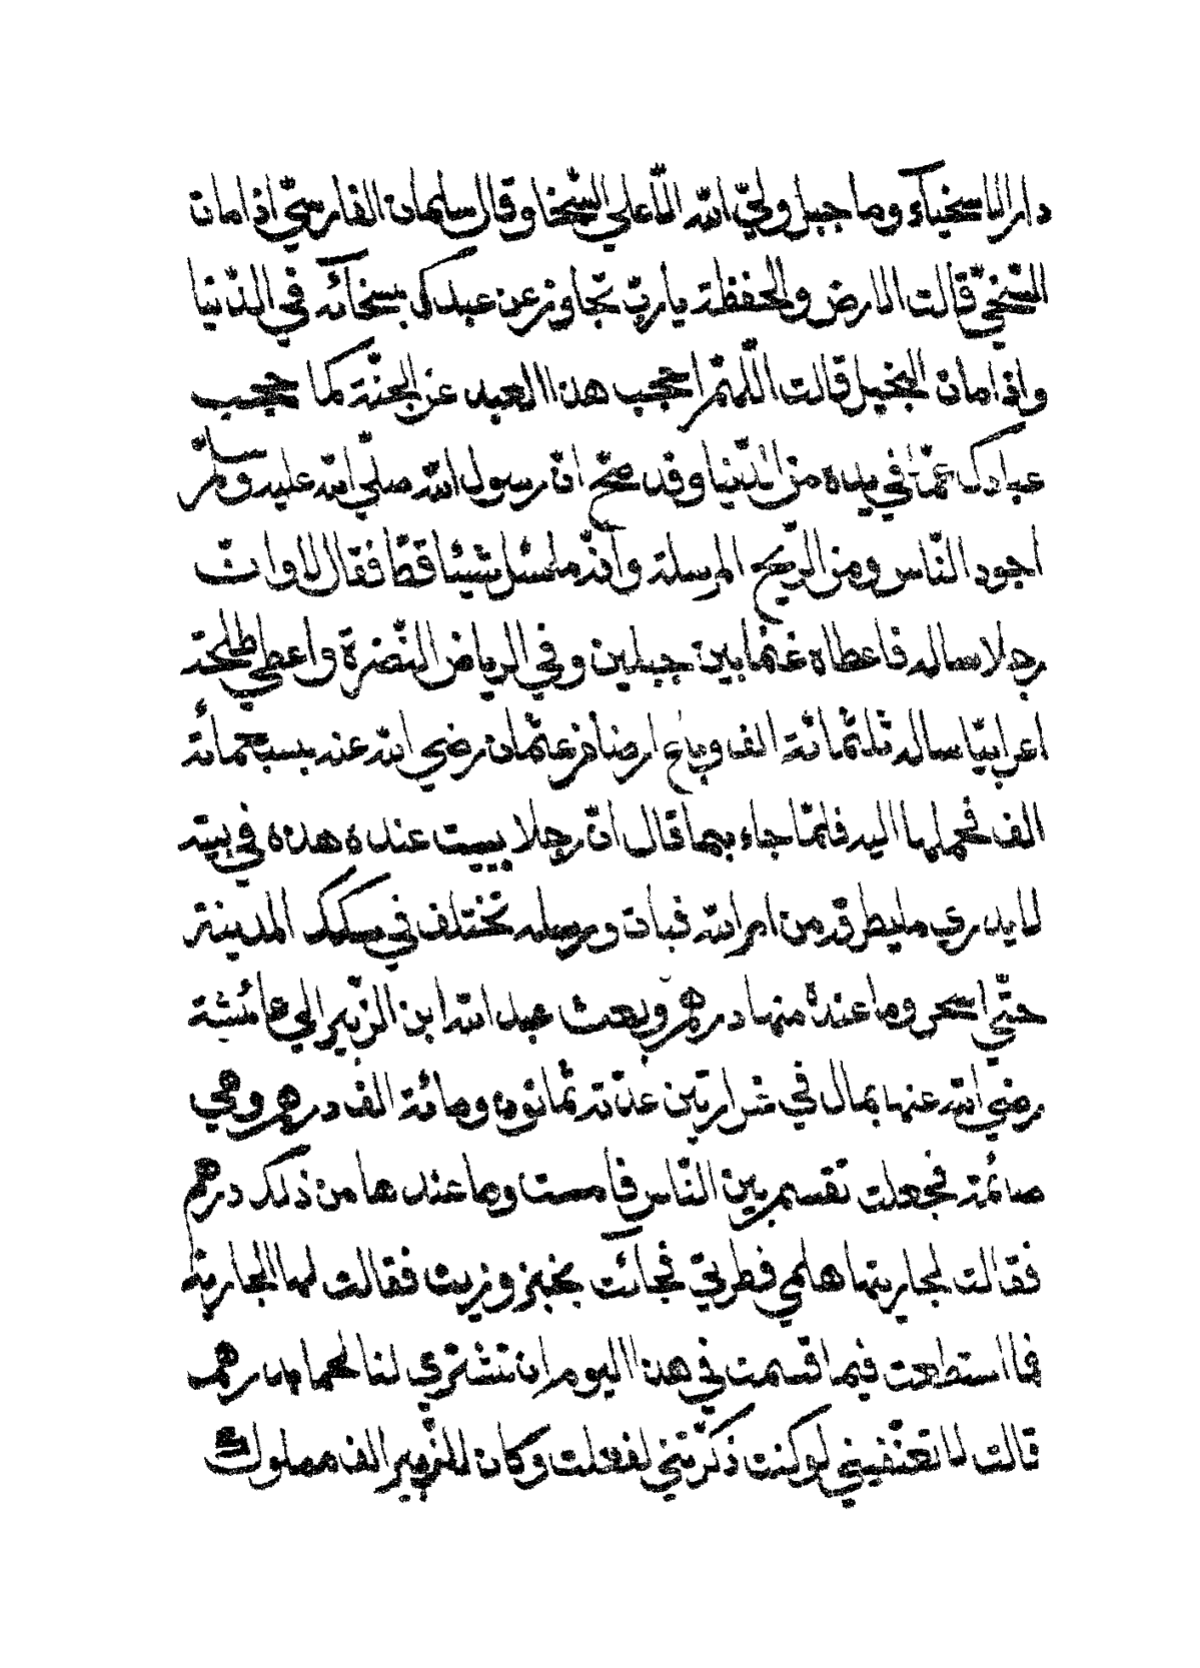 دار الاسخياء وما جبل ولي الله الا على السخا وقال سليمان الفارسي اذا مات
السّخيّ قالت الارض والحفظة يا ربّ تجاوز عن عبدك بسخائه في الدّنيا
واذا مات البخيل قالت اللّهمّ احجب هذا العبد عن الجنّة كما حجب
عبادك عمّا في يده من الدّنيا وقد صحّ ان رسول الله صلّي الله عليه وسلم
اجود النّاس ومن الرّيح المرسلة وانّه ما سئل شيئا قطّ فقال لا وانّ
رجلا ساله فاعطاه غنما بين جبلين وفي الرياض النّضرة واعطي طلحة
اعرابيّا ساله ثلثمائة الف وباع ارضا من عثمان رضي الله عنه بسبعمائة
الف فحملها اليه فلمّا جاء بها قال انّ رجلا يبيت عنده هذه في بيته
لا يدري ما يطرقه من امر الله فبات ورسله تختلف في سكك المدينة
حتّي اسحر وما عنده منها درهم وبعث عبد الله ابن الزّبير الي عائشة
رضي الله عنها بمال في غرارتين عدّته ثمانون ومائة الف درهم وهي
صائمة فجعلت تقسم بين النّاس فامست وما عندها من ذلك درهم
فقالت لجاريتها هلمي فطرتي فجائت بخبز وزيت فقالت لها الجارية
فما استطعت فيما قسمت في هذا اليوم ان تشتري لنا لحما بدرهم
قالت لا تعنّفيني لو كنت ذكّرتني لفعلت وكان للزبير الف مملوك